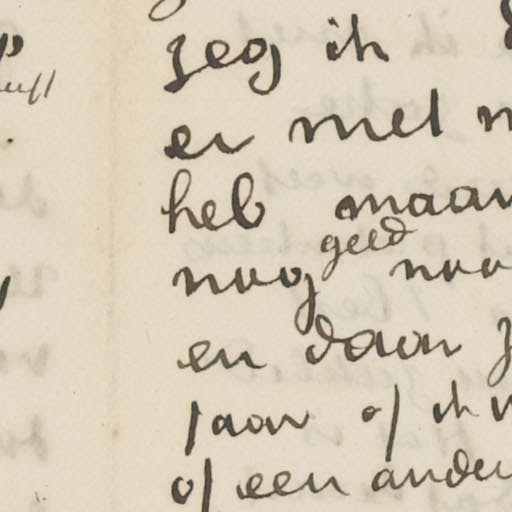 zeg ik
er met
heb maar
geld
nog noo
en daar
jaar of ik
of een ander